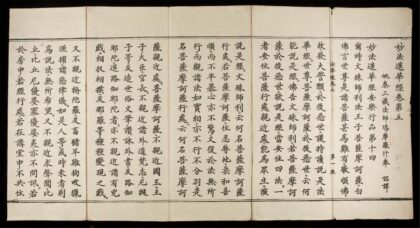 妙法蓮華經卷第五
姚秦三藏法師鳩摩羅什奉 詔譯
妙法蓮華經安樂行品第十四
爾時文殊師利法王子菩薩摩訶薩白
佛言世尊是諸菩薩甚為難有敬順佛
第一張
故發大誓願於後惡世護持讀說是法
華經世尊菩薩摩訶薩於後惡世云何
能說是經佛告文殊師利若菩薩摩訶
薩於後惡世欲說是經當安住四法一
者安住菩薩行處親近處能為眾生演
說是經文殊師利云何名菩薩摩訶薩
行處若菩薩摩訶薩住忍辱地柔和善
順而不卒暴心亦不驚又復於法無所
行而觀諸法如實相亦不行不分別是
名菩薩摩訶薩行處云何名菩薩摩訶
薩親近處菩薩摩訶薩不親近國王王
子大臣官長不親近諸外道梵志尼揵
子等及造世俗文筆讚詠外書及路伽
耶陀逆路伽耶陀者亦不親近諸有兇
戲相扠相撲及那羅等種種變現之戲
又不親近旃陀羅及畜豬羊雞狗畋獵
漁捕諸惡律儀如是人等或時來者則
為說法無所悕望又不親近求聲聞比
丘比丘尼優婆塞優婆夷亦不問訊若
於房中若經行處若在講堂中不共住